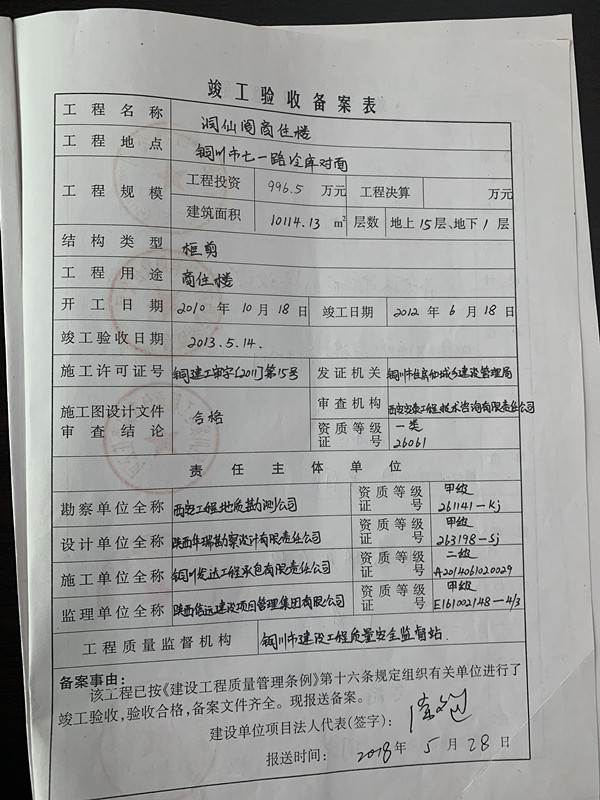 竣工验收备案表
工程名称 洞仙阁商住楼
工程地点 铜川市七一路冷库对面
工程规模 工程投资 996.5 万元 工程决算 万元
建筑面积 10114.13 m² 层数 地上15层、地下1层
结构类型 框剪
工程用途 商住楼
开工日期 2010年10月18日 竣工日期 2012年6月18日
竣工验收日期 2013.5.14.
施工许可证号 铜建工审字[2011]第15号 发证机关 铜川市住房和城乡建设管理局
施工图设计文件审查结论 合格 审查机构 西安安泰工程技术咨询有限责任公司
资质等级 一类
证号 26061
责任主体单位
勘察单位全称 西安工程地质勘测公司 资质等级 甲级
证号 261141-kj
设计单位全称 陕西华瑞勘察设计有限责任公司 资质等级 甲级
证号 263198-Sj
施工单位全称 铜川发达工程承包有限责任公司 资质等级 二级
证号 A2014061020029
监理单位全称 陕西信远建设项目管理集团有限公司 资质等级 甲级
证号 E161002148-4/3
工程质量监督机构 铜川市建设工程质量安全监督站.
备案事由:
该工程已按《建设工程质量管理条例》第十六条规定组织有关单位进行了
竣工验收,验收合格,备案文件齐全。现报送备案。
建设单位项目法人代表(签字):
报送时间: 2018年5月28日